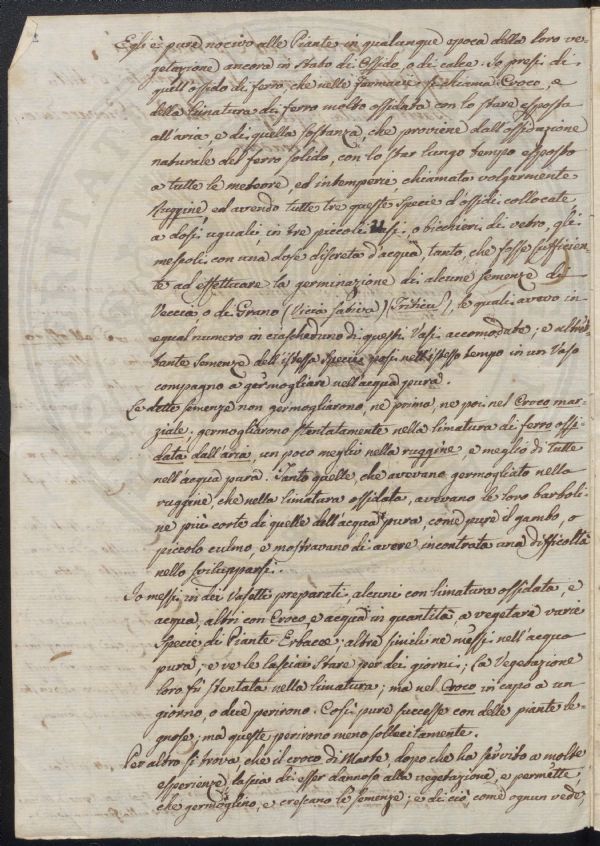 Egli è pure nocivo alle Piante in qualunque epoca della loro ve-
getazione ancora in stato di Ossido, o di calce. Io presi di
quell'ossido di ferro, che nelle farmacie si chiama Croco, e
della limatura di ferro molto ossidata con lo stare esposta
all'aria, e di quella sostanza, che proviene dall'ossidazione
naturale del ferro solido, con lo star lungo tempo esposto
a tutte le meteore, ed intemperie, chiamata volgarmente
Ruggine, ed avendo tutte tre queste specie d'ossidi collocate,
a dosi uguali, in tre piccoli Vasi, o bicchieri di vetro, gli
mescolai con una dose discreta d'acqua, tanto, che fosse sufficien-
te ad effettuare la germinazione di alcune semenze di
Veccia, o di Grano (Vicia sativa) (Triticum), le quali avevo in
egual numero in ciascheduno di questi Vasi accomodate; e altret-
tante Semenze dell'istessa Specie posi nell'istesso tempo in un Vaso
compagno a germogliare nell'acqua pura.
Le dette semenze non germogliarono, nè prima, nè poi nel Croco mar-
ziale; germogliarono stentatamente nella limatura di ferro ossi-
data dall'aria, un poco meglio nella ruggine, e meglio di tutte
nell'acqua pura. Tanto quelle, che avevano germogliato nella
ruggine, che nella limatura ossidata, avevano le loro barboli-
ne più corte di quelle dell'acqua pura, come pure il gambo, o
piccolo culmo, e mostravano di avere incontrata una difficoltà
nello svilupparsi.
Io messi in dei Vasetti preparati, alcuni con limatura ossidata, e
acqua, altri con Croco, e acqua in quantità, a vegetare varie
specie di Piante Erbacee; altre simili ne messi nell'acqua
pura; e ve le lasciai stare per dei giorni; la Vegetazione
loro fù stentata nella limatura; ma nel Croco in capo a un
giorno, o due perirono. Così pure successe con delle piante le-
gnose; ma queste perirono meno sollecitamente.
Per altro si trova, che il croco di Marte, dopo che ha servito a molte
esperienze, lascia di esser dannoso alla vegetazione, e permette,
che germoglino, e crescano le semenze; e di ciò, come ognun vede,